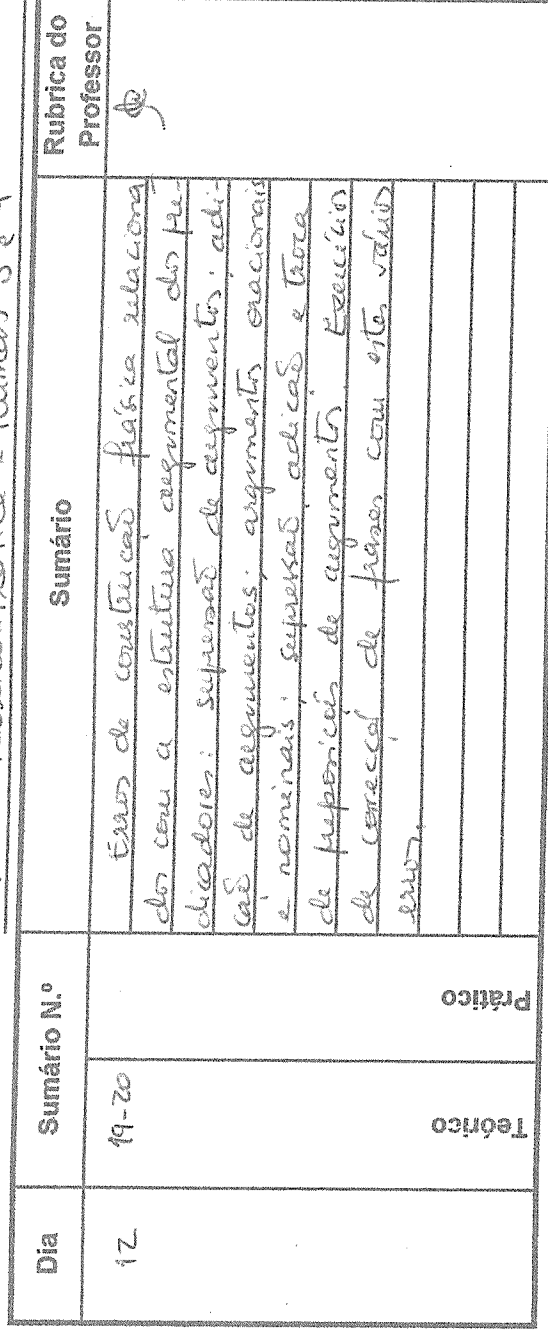 Dia
Sumário N.º
Sumário
Rubrica do
Professor
12
19-20
Teórico
Prático
Erros de construção frásica relaciona
dos com a estrutura argumental dos pre-
dicadores: supressão de argumentos; adi-
ção de argumentos; argumentos oracionais
e nominais; supressão adição e troca
de preposições de argumentos. Exercícios
de correcção de frases com estes vários
erros.